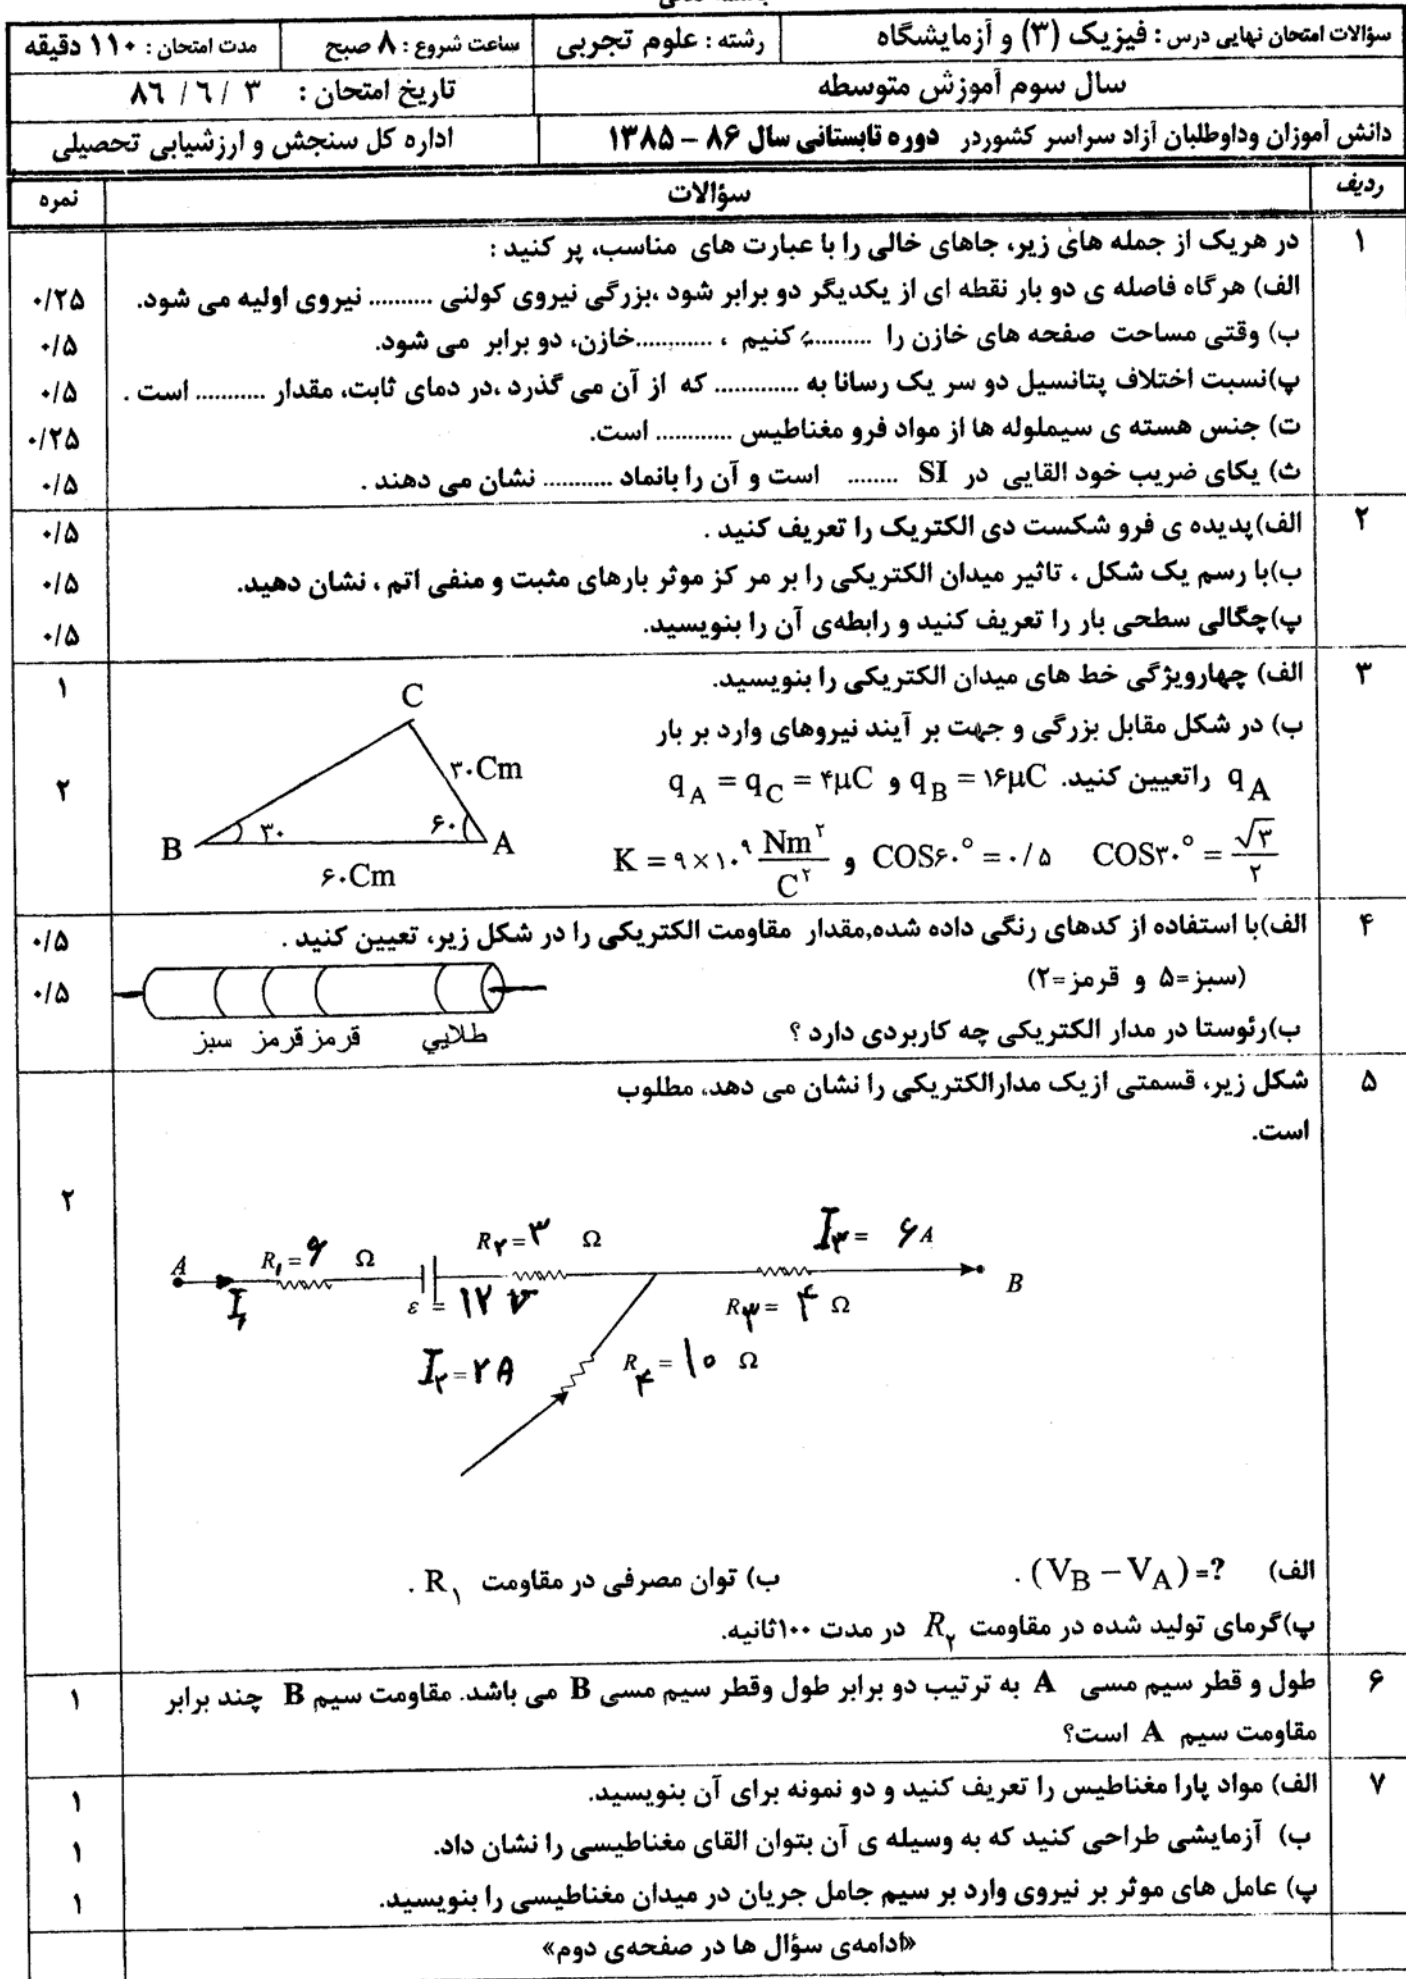 سؤالات امتحان نهایی درس : فیزیک (۳) و آزمایشگاه رشته : علوم تجربی ساعت شروع : ۸ صبح مدت امتحان : ۱۱۰ دقیقه
سال سوم آموزش متوسطه تاریخ امتحان : ۳ / ٦ / ۸٦
دانش آموزان وداوطلبان آزاد سراسر کشوردر دوره تابستانی سال ۸۶ – ۱۳۸۵ اداره کل سنجش و ارزشیابی تحصیلی
ردیف سؤالات نمره
۱ در هریک از جمله های زیر، جاهای خالی را با عبارت های مناسب، پر کنید :
الف) هرگاه فاصله ی دو بار نقطه ای از یکدیگر دو برابر شود ،بزرگی نیروی کولنی .......... نیروی اولیه می شود. ۰/۲۵
ب) وقتی مساحت صفحه های خازن را .......... کنیم ، ............خازن، دو برابر می شود. ۰/۵
پ)نسبت اختلاف پتانسیل دو سر یک رسانا به ............. که از آن می گذرد ،در دمای ثابت، مقدار ........... است . ۰/۵
ت) جنس هسته ی سیملوله ها از مواد فرو مغناطیس ............ است. ۰/۲۵
ث) یکای ضریب خود القایی در SI ........ است و آن را بانماد ........... نشان می دهند . ۰/۵
۲ الف)پدیده ی فرو شکست دی الکتریک را تعریف کنید . ۰/۵
ب)با رسم یک شکل ، تاثیر میدان الکتریکی را بر مر کز موثر بارهای مثبت و منفی اتم ، نشان دهید. ۰/۵
پ)چگالی سطحی بار را تعریف کنید و رابطه‌ی آن را بنویسید. ۰/۵
۳ الف) چهارویژگی خط های میدان الکتریکی را بنویسید. ۱
ب) در شکل مقابل بزرگی و جهت بر آیند نیروهای وارد بر بار
q_A راتعیین کنید. q_B = ۱۶μC و q_A = q_C = ۴μC ۲
K = ۹ × ۱۰^۹ Nm^۲/C^۲ و COS۶۰° = ۰/۵ COS۳۰° = √۳/۲
C
۳۰Cm
B ۳۰ ۶۰ A
۶۰Cm
۴ الف)با استفاده از کدهای رنگی داده شده,مقدار مقاومت الکتریکی را در شکل زیر، تعیین کنید . ۰/۵
(سبز=۵ و قرمز=۲) ۰/۵
سبز قرمز قرمز طلايي
ب)رئوستا در مدار الکتریکی چه کاربردی دارد ؟
۵ شکل زیر، قسمتی ازیک مدارالکتریکی را نشان می دهد، مطلوب
است.
۲
A I₁ R₁ = ۶ Ω ε = ۱۲ V R۲ = ۳ Ω I۳ = ۶ A B
R۳ = ۴ Ω
I۲ = ۲ A R۴ = ۱۰ Ω
الف) (V_B – V_A) =? . ب) توان مصرفی در مقاومت R₁ .
پ)گرمای تولید شده در مقاومت R۲ در مدت ۱۰۰ثانیه.
۶ طول و قطر سیم مسی A به ترتیب دو برابر طول وقطر سیم مسی B می باشد. مقاومت سیم B چند برابر ۱
مقاومت سیم A است؟
۷ الف) مواد پارا مغناطیس را تعریف کنید و دو نمونه برای آن بنویسید. ۱
ب) آزمایشی طراحی کنید که به وسیله ی آن بتوان القای مغناطیسی را نشان داد. ۱
پ) عامل های موثر بر نیروی وارد بر سیم حامل جریان در میدان مغناطیسی را بنویسید. ۱
«ادامه‌ی سؤال ها در صفحه‌ی دوم»